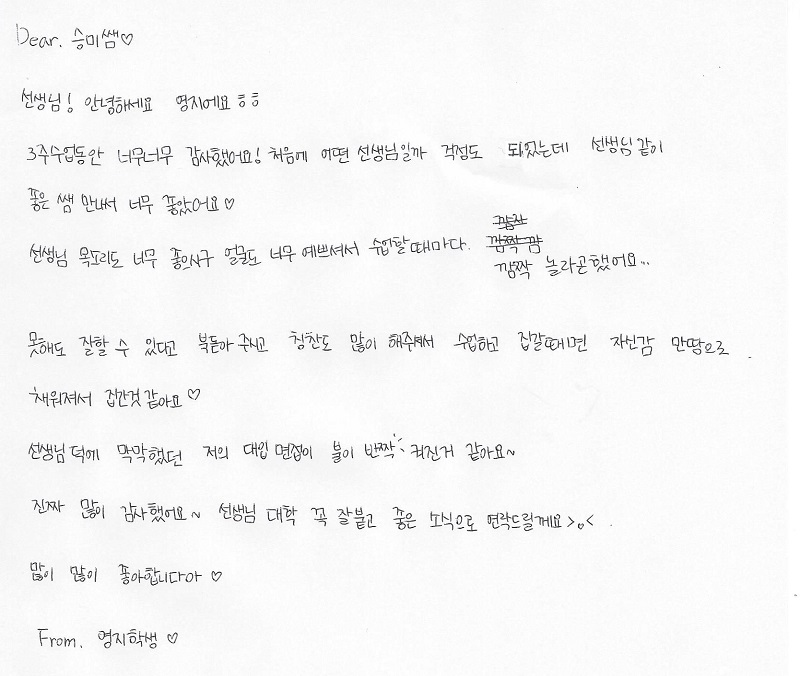 Dear. 승미쌤♡
선생님! 안녕하세요 영지에요ㅎㅎ
3주수업동안 너무너무 감사했어요! 처음에 어떤 선생님일까 걱정도 되었는데 선생님같이
좋은 쌤 만나서 너무 좋았어요♡
선생님 목소리도 너무 좋으시구 얼굴도 너무 예쁘셔서 수업할때마다. 깜짝 놀라곤했어요...
못해도 잘할 수 있다고 북돋아 주시고 칭찬도 많이 해주셔서 수업하고 집갈때면 자신감 만땅으로
채워져서 집간것 같아요♡
선생님덕에 막막했던 저의 대입 면접이 불이 반짝 켜진거 같아요~
진짜 많이 감사했어요~ 선생님 대학 꼭 잘붙고 좋은 소식으로 연락드릴게요>.<
많이 많이 좋아합니다아♡
From. 영지학생♡